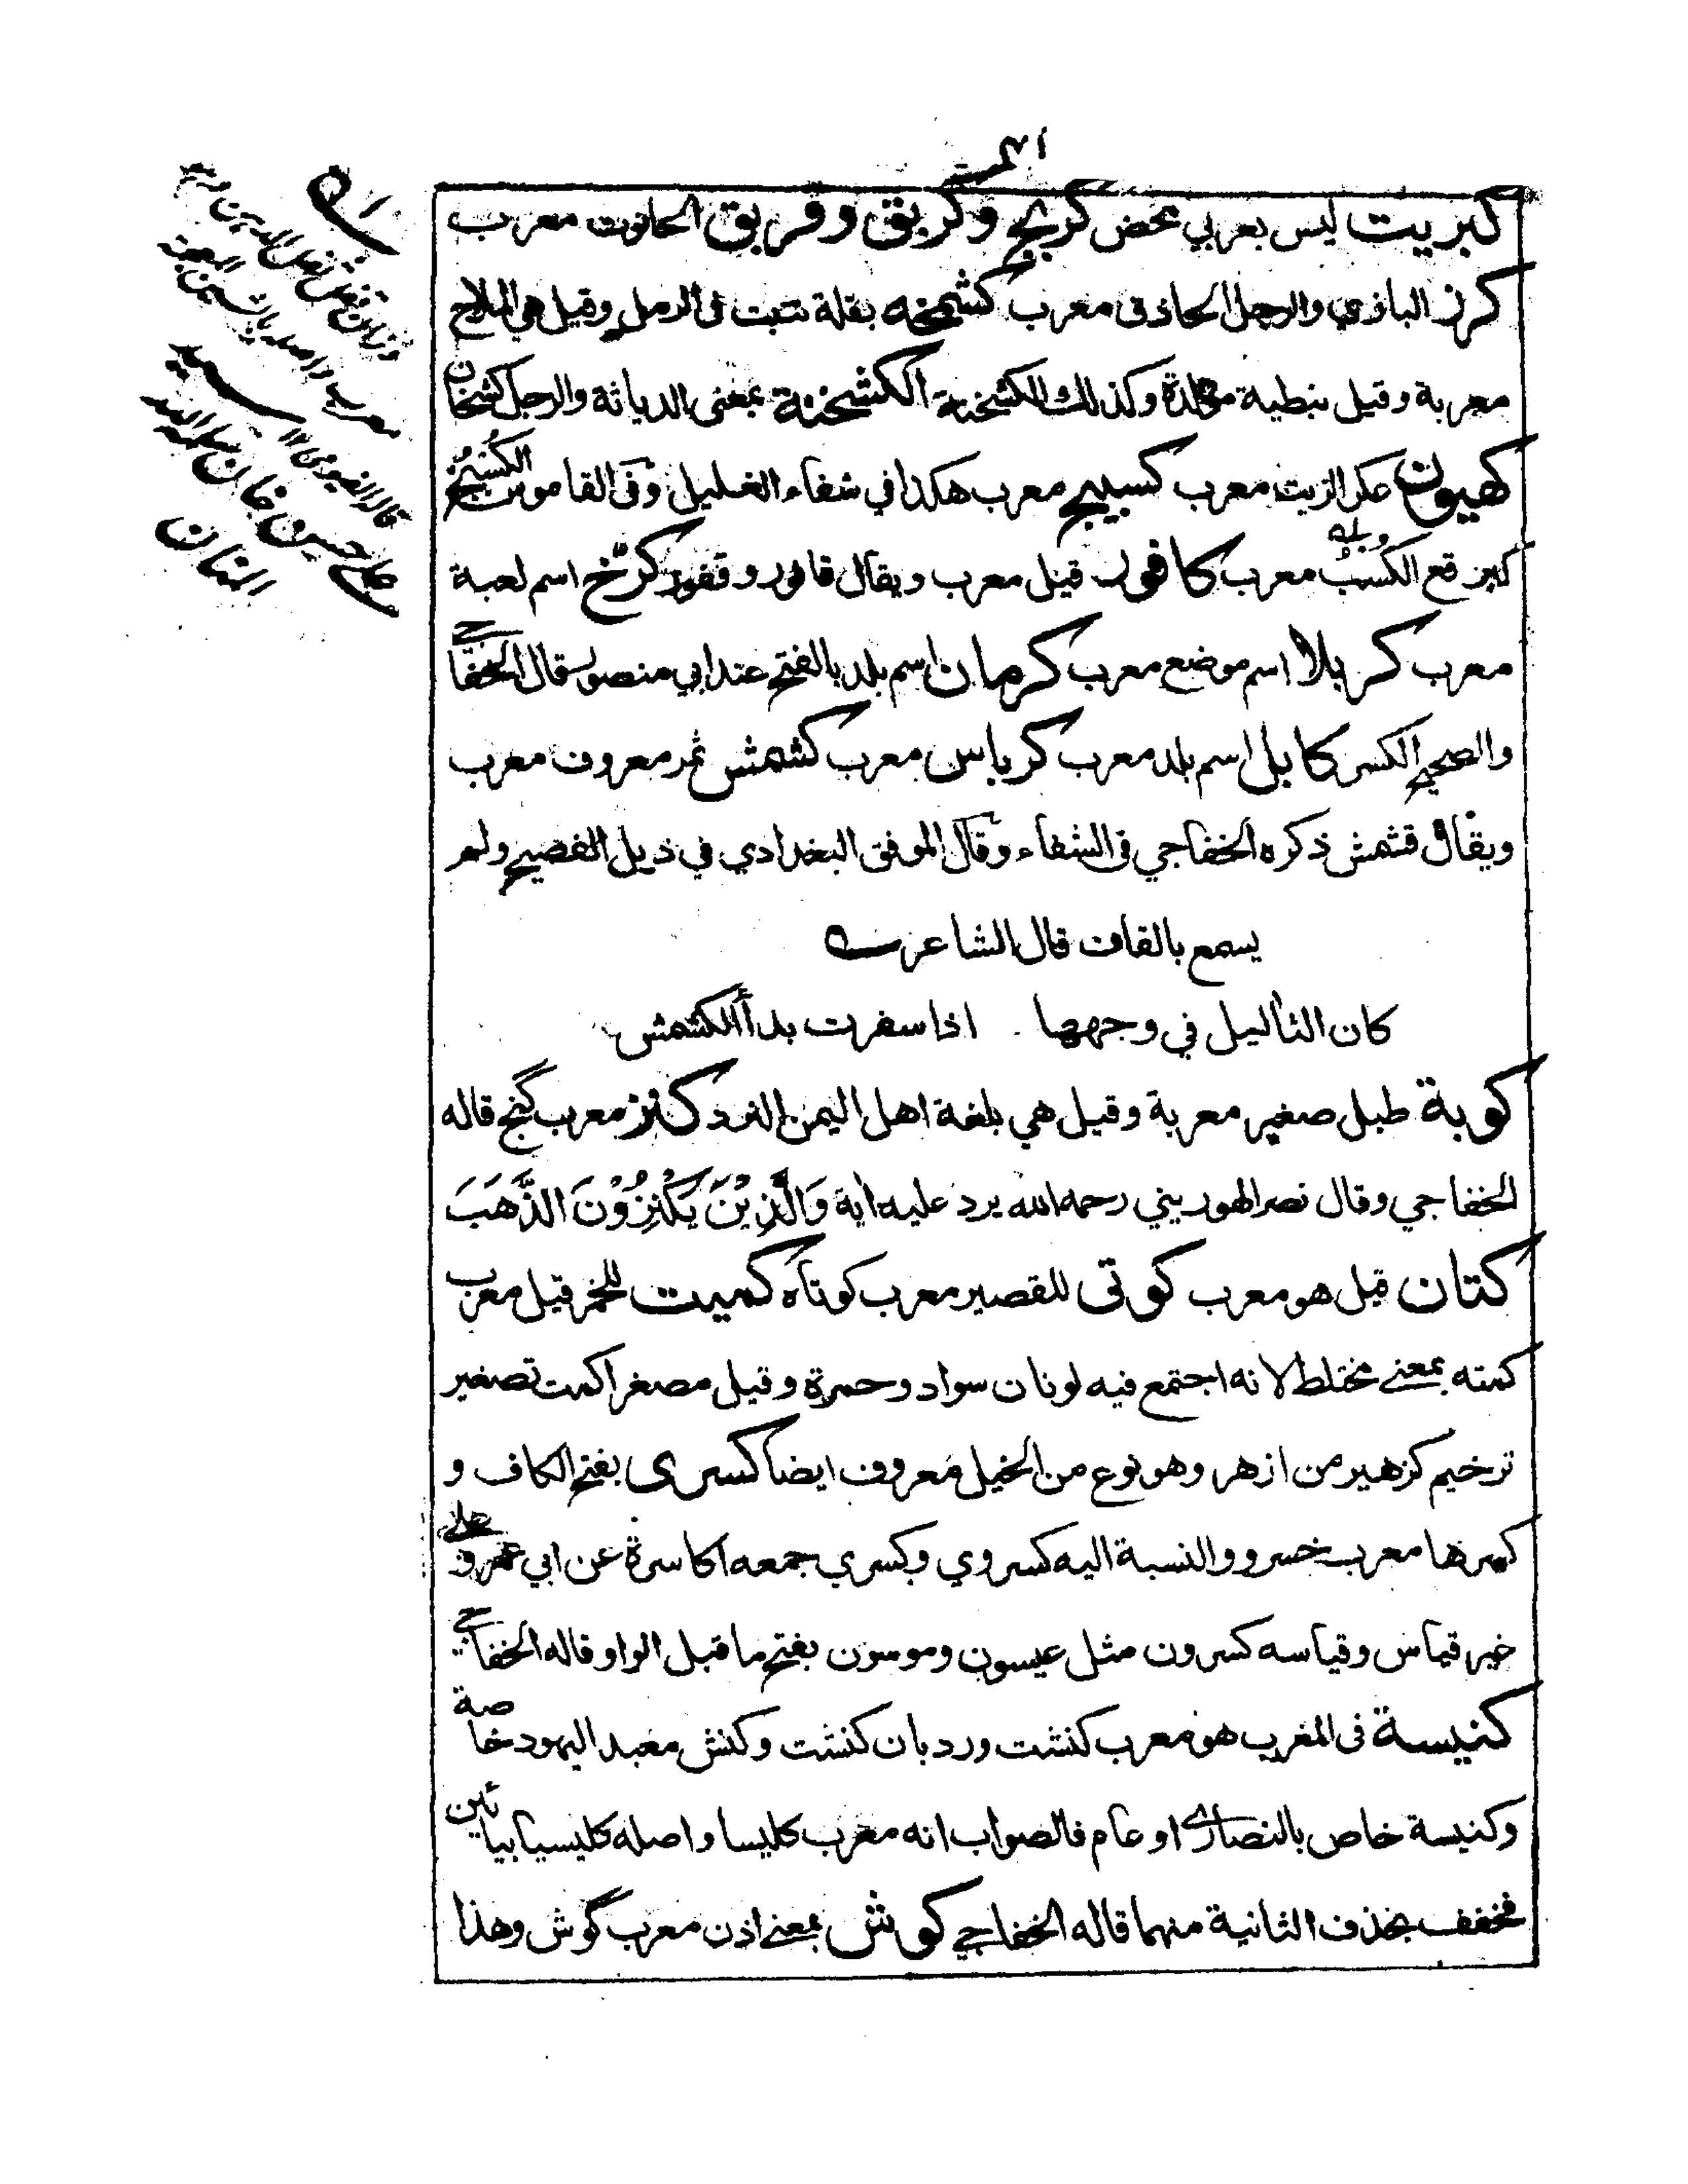 كبريت ليس بعربي محض كربج وكربق وقربق الحانوت معرب
كرز البازي والرجل الحاذق معرب كشمخه بقلة تنبت في الرمل وقيل هي الملاح
معربة وقيل نبطية وكذلك الكشخنة الكشخنة بمعنى الدياثة والرجل كشخان
كهيون عكر الزيت معرب كسبيج معرب هكذا في شفاء الغليل وفي القاموس الكسبج
كبرقع الكسب وبله معرب كافور قيل معرب ويقال قافور وقفور كرخ اسم لعبة
معرب كربلا اسم موضع معرب كرمان اسم بلد بالفتح عند ابي منصور قال الخفاجي
والصحيح الكسر كابل اسم بلد معرب كرباس معرب كشمش ثمر معروف معرب
ويقال قشمش ذكره الخفاجي في الشفاء وقال الموفق البغدادي في ذيل الفصيح ولم
يسمع بالقاف قال الشاعر
كان الثأليل في وجهها اذا سفرت بدأ الكشمش
كوبة طبل صغير معربة وقيل هي بلغة اهل اليمن النرد كنز معرب گنج قاله
الخفاجي وقال نصر الهوريني رحمه الله يرد عليه اية وَالَّذِيْنَ يَكْنِزُوْنَ الذَّهَبَ
كتان قيل هو معرب كوتى للقصير معرب كوتاه كميت للخمر قيل معرب
كمته بمعنى مختلط لانه اجتمع فيه لونان سواد وحمرة وقيل مصغر اكمت تصغير
ترخيم كزهير من ازهر وهو نوع من الخيل معروف ايضا كسرى بفتح الكاف و
كسرها معرب خسرو والنسبة اليه كسروي وكسري جمعه اكاسرة عن ابي عمرو على
خير قياس وقياسه كسرون مثل عيسون وموسون بفتح ما قبل الواو قاله الخفاجي
كنيسة في المغرب هو معرب كنشت ورد بان كنشت وكنش معبد اليهود خاصة
وكنيسة خاص بالنصارى او عام فالصواب انه معرب كليسا واصله كليسيا بيائين
فخفف بحذف الثانية منهما قاله الخفاجي كوش بمعنى اذن معرب گوش وهذا